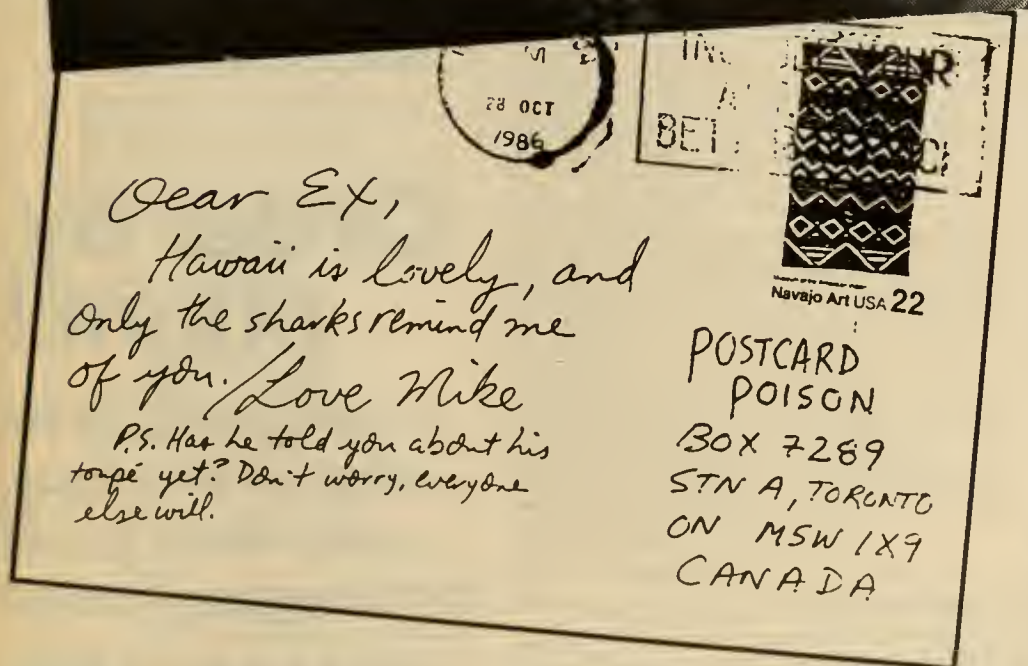 28 OCT
1986
BET
Dear Ex,
Hawaii is lovely, and
only the sharks remind me
of you. / Love Mike
P.S. Has he told you about his
toupé yet? Don't worry, everyone
else will.
Navajo Art USA 22
POSTCARD
POISON
BOX 7289
STN A, TORONTO
ON M5W 1X9
CANADA